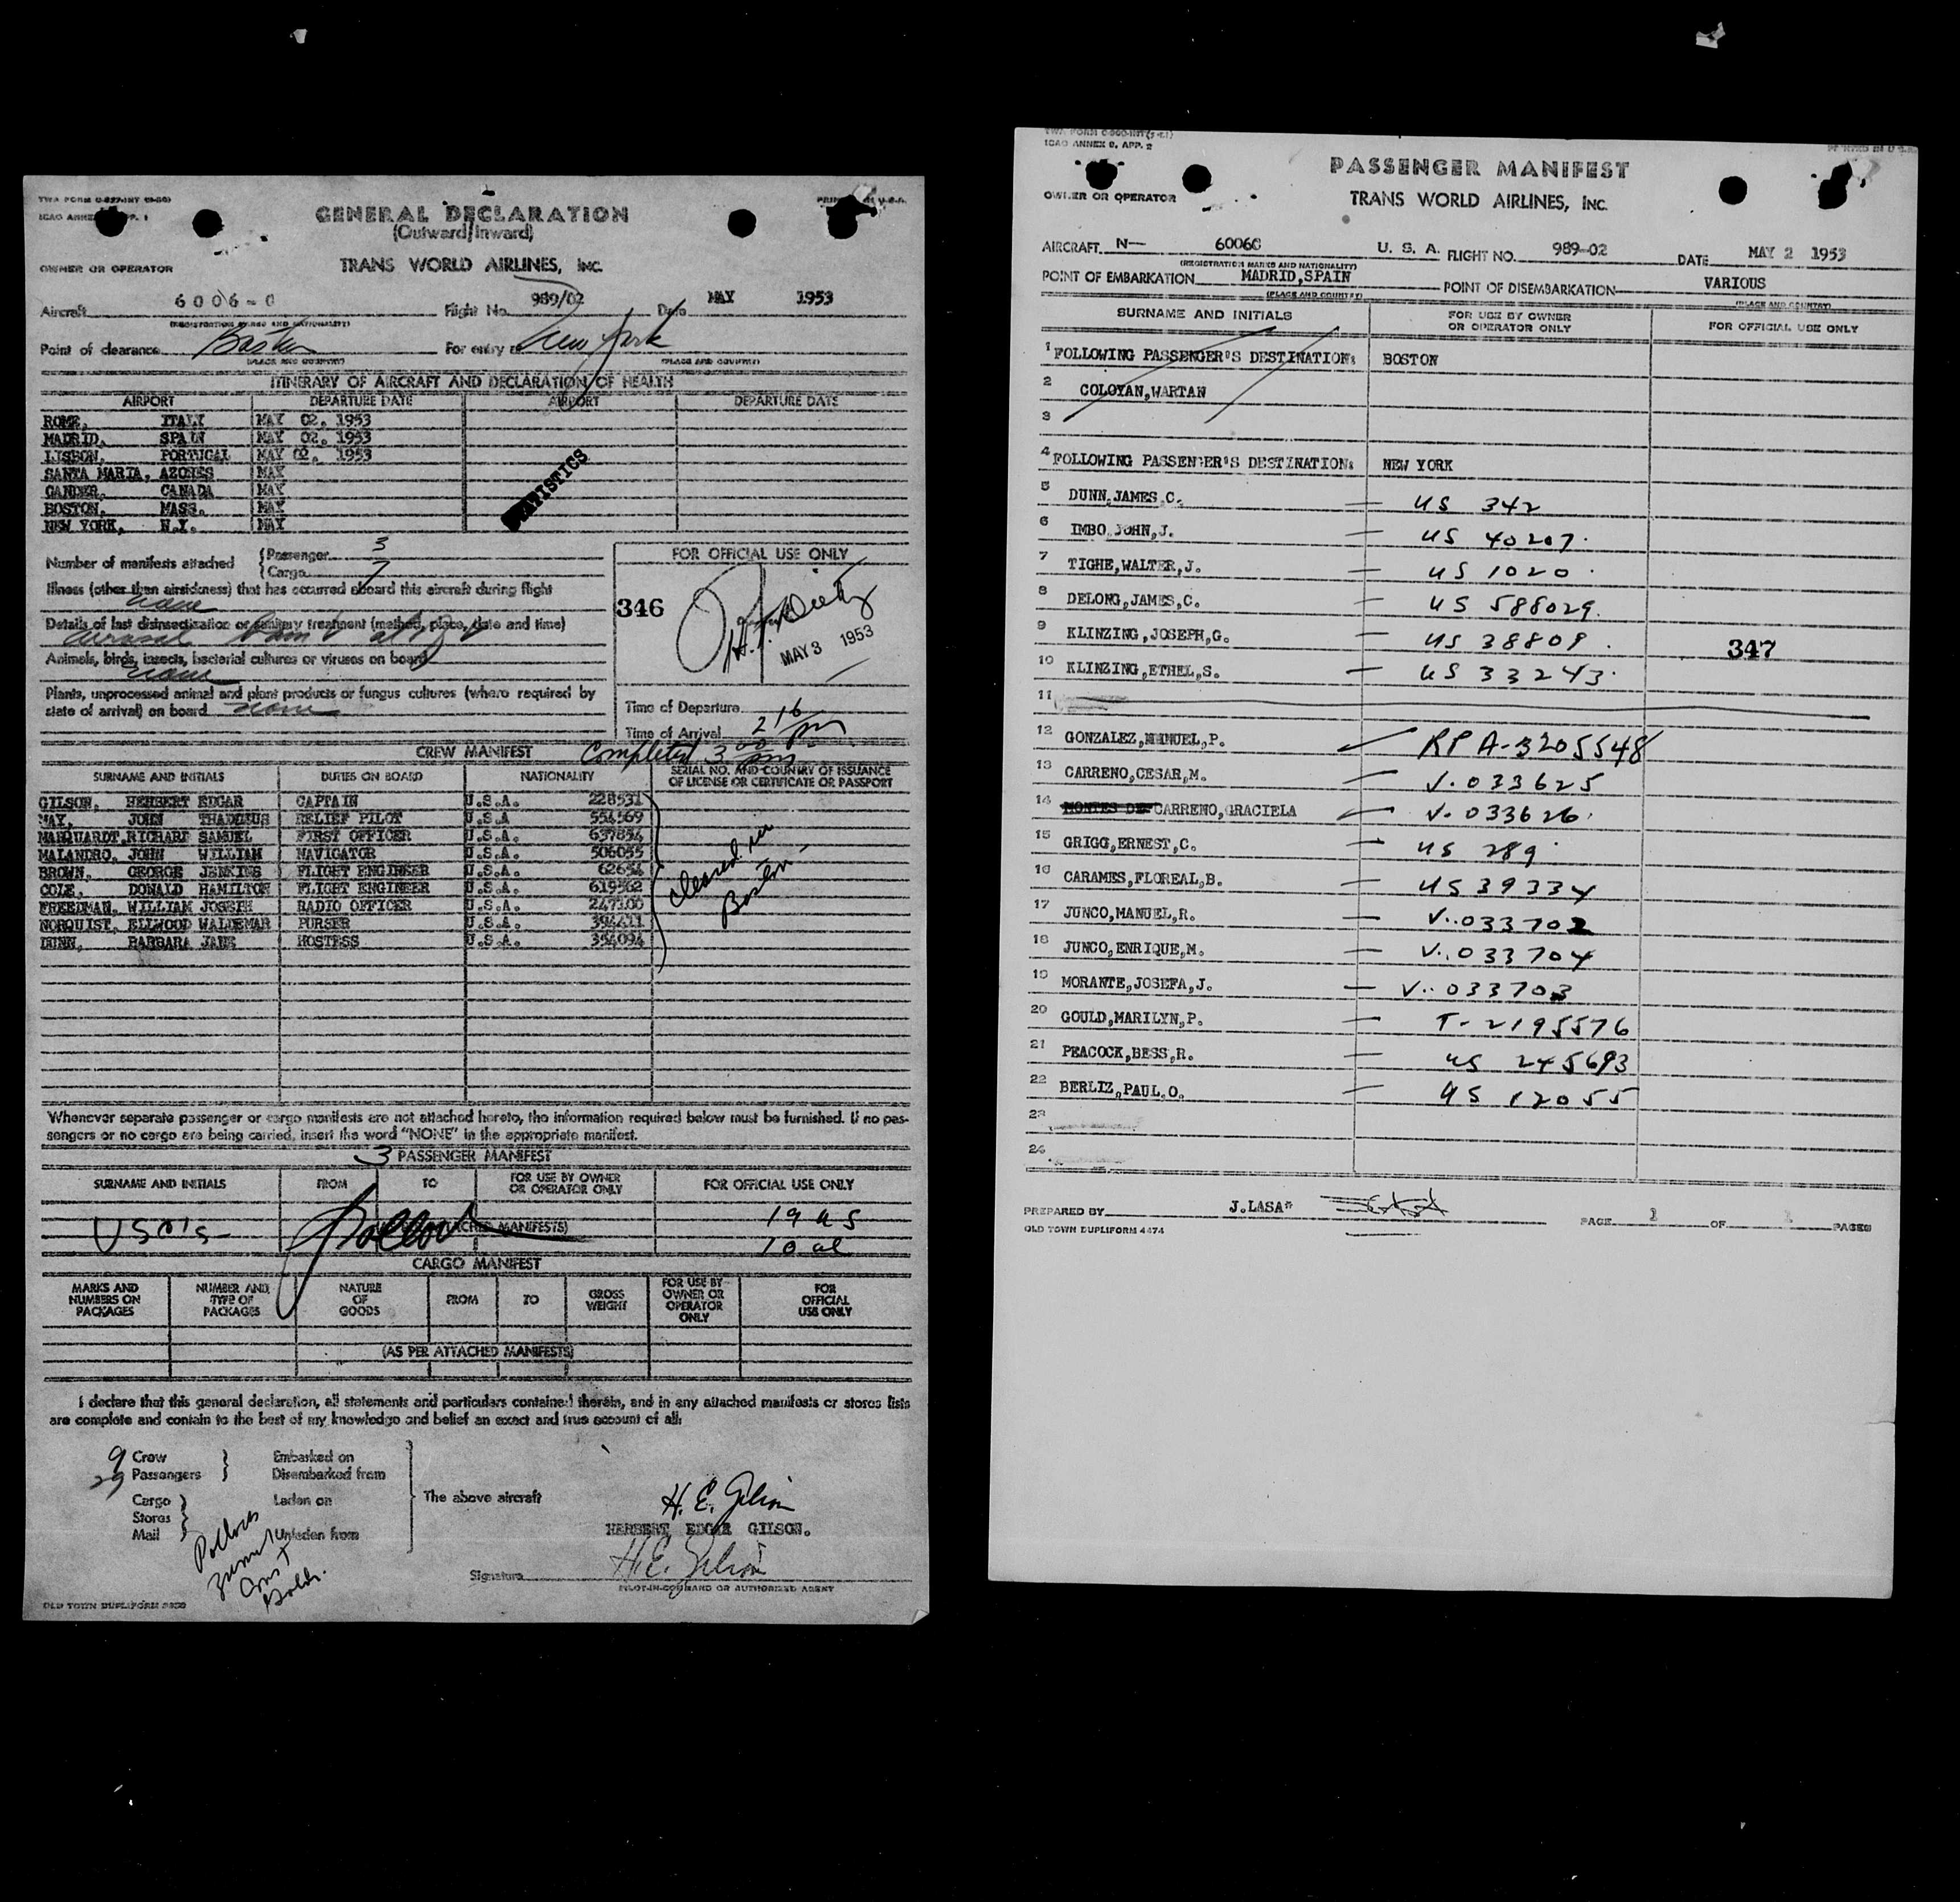 TWA FORM C-827-INT (9-50)
ICAO ANNEX 9, APP. 1
GENERAL DECLARATION
(Outward/Inward)
OWNER OR OPERATOR TRANS WORLD AIRLINES, INC.
Aircraft 6006-C Flight No. 989/02 Date MAY 1953
(REGISTRATION MARKS AND NATIONALITY)
Point of clearance Boston For entry at New York
(PLACE AND COUNTRY) (PLACE AND COUNTRY)
ITINERARY OF AIRCRAFT AND DECLARATION OF HEALTH
AIRPORT DEPARTURE DATE AIRPORT DEPARTURE DATE
ROME, ITALY MAY 02, 1953
MADRID, SPAIN MAY 02, 1953
LISBON, PORTUGAL MAY 02, 1953
SANTA MARIA, AZORES MAY
GANDER, CANADA MAY
BOSTON, MASS. MAY
NEW YORK, N.Y. MAY
Number of manifests attached { Passenger 3
{ Cargo 7
Illness (other than airsickness) that has occurred aboard this aircraft during flight
none
Details of last disinsectization or sanitary treatment (method, place, date and time)
aerosol bomb at
Animals, birds, insects, bacterial cultures or viruses on board
none
Plants, unprocessed animal and plant products or fungus cultures (where required by
state of arrival) on board none
FOR OFFICIAL USE ONLY
346
MAY 3 1953
Time of Departure
Time of Arrival 2 16 pm
Completed 3 00 pm
CREW MANIFEST
SURNAME AND INITIALS DUTIES ON BOARD NATIONALITY SERIAL NO. AND COUNTRY OF ISSUANCE
OF LICENSE OR CERTIFICATE OR PASSPORT
GILSON, HERBERT EDGAR CAPTAIN U.S.A. 228531
MAY, JOHN THADDEUS RELIEF PILOT U.S.A 554569
MARQUARDT, RICHARD SAMUEL FIRST OFFICER U.S.A. 637854
MALANDRO, JOHN WILLIAM NAVIGATOR U.S.A. 506055
BROWN, GEORGE JENKINS FLIGHT ENGINEER U.S.A. 62654
COLE, DONALD HAMILTON FLIGHT ENGINEER U.S.A. 619562
FREEDMAN, WILLIAM JOSEPH RADIO OFFICER U.S.A. 247100
NORQUIST, ELLWOOD WALDEMAR PURSER U.S.A. 394411
DUNN, BARBARA JANE HOSTESS U.S.A. 354094
cleared in
Boston
Whenever separate passenger or cargo manifests are not attached hereto, the information required below must be furnished. If no pas-
sengers or no cargo are being carried, insert the word "NONE" in the appropriate manifest.
3 PASSENGER MANIFEST
SURNAME AND INITIALS FROM TO FOR USE BY OWNER
OR OPERATOR ONLY FOR OFFICIAL USE ONLY
19 US
ATTACHED MANIFESTS)
10 al
CARGO MANIFEST
MARKS AND
NUMBERS ON
PACKAGES NUMBER AND
TYPE OF
PACKAGES NATURE
OF
GOODS FROM TO GROSS
WEIGHT FOR USE BY
OWNER OR
OPERATOR
ONLY FOR
OFFICIAL
USE ONLY
(AS PER ATTACHED MANIFESTS)
I declare that this general declaration, all statements and particulars contained therein, and in any attached manifests or stores lists
are complete and contain to the best of my knowledge and belief an exact and true account of all:
9 Crew } Embarked on
29 Passengers } Disembarked from
Cargo } Laden on The above aircraft
Stores
Mail } Unladen from
H. E. Gilson
HERBERT EDGAR GILSON.
Signature H. E. Gilson
PILOT-IN-COMMAND OR AUTHORIZED AGENT
OLD TOWN DUPLIFORM
ICAO ANNEX 9, APP. 2
PRINTED IN U.S.A.
PASSENGER MANIFEST
OWNER OR OPERATOR TRANS WORLD AIRLINES, INC.
AIRCRAFT N— 6006C U. S. A. FLIGHT NO. 989-02 DATE MAY 2 1953
(REGISTRATION MARKS AND NATIONALITY)
POINT OF EMBARKATION MADRID,SPAIN POINT OF DISEMBARKATION VARIOUS
(PLACE AND COUNTRY) (PLACE AND COUNTRY)
SURNAME AND INITIALS FOR USE BY OWNER
OR OPERATOR ONLY FOR OFFICIAL USE ONLY
1 FOLLOWING PASSENGER'S DESTINATION: BOSTON
2 COLOYAN,WARTAN
3
4 FOLLOWING PASSENGER'S DESTINATION: NEW YORK
5 DUNN,JAMES,C. — US 342
6 IMBO,JOHN,J. — US 40207.
7 TIGHE,WALTER,J. — US 1020
8 DELONG,JAMES,C. — US 588029.
9 KLINZING,JOSEPH,G. — US 38809.
347
10 KLINZING,ETHEL,S. — US 33243.
11
12 GONZALEZ,MANUEL,P. RP A-3205548
13 CARRENO,CESAR,M. V.033625
14 MONTES DE CARRENO,GRACIELA V.033626.
15 GRIGG,ERNEST,C. — US 289
16 CARAMES,FLOREAL,B. — US 39334
17 JUNCO,MANUEL,R. — V..033702
18 JUNCO,ENRIQUE,M. — V..033704
19 MORANTE,JOSEFA,J. — V..033703
20 GOULD,MARILYN,P. — T-2195576
21 PEACOCK,BESS,R. — US 245693
22 BERLIZ,PAUL,O. — US 12055
23
24
PREPARED BY J.LASA* PAGE 1 OF 1 PAGES
OLD TOWN DUPLIFORM 4474